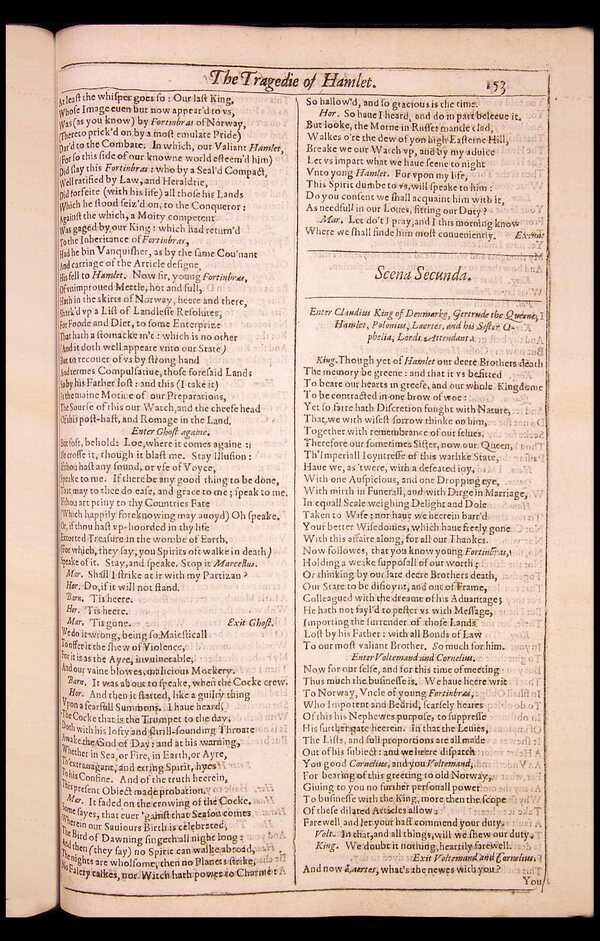 The Tragedie of Hamlet. 153
At least the whisper goes so: Our last King,
Whose Image euen but now appear'd to vs,
Was (as you know) by Fortinbras of Norway,
(Thereto prick'd on by a most emulate Pride)
Dar'd to the Combate. In which, our Valiant Hamlet,
(For so this side of our knowne world esteem'd him)
Did slay this Fortinbras: who by a Seal'd Compact,
Well ratified by Law, and Heraldrie,
Did forfeite (with his life) all those his Lands
Which he stood seiz'd on, to the Conqueror:
Against the which, a Moity competent
Was gaged by our King: which had return'd
To the Inheritance of Fortinbras,
Had he bin Vanquisher, as by the same Cou'nant
And carriage of the Article designe,
His fell to Hamlet. Now sir, young Fortinbras,
Of vnimproued Mettle, hot and full,
Hath in the skirts of Norway, heere and there,
Shark'd vp a List of Landlesse Resolutes,
For Foode and Diet, to some Enterprize
That hath a stomacke in't: which is no other
(And it doth well appeare vnto our State)
But to recouer of vs by strong hand
And termes Compulsatiue, those foresaid Lands
So by his Father lost: and this (I take it)
Is the maine Motiue of our Preparations,
The Sourse of this our Watch, and the cheefe head
Of this post-hast, and Romage in the Land.
Enter Ghost againe.
But soft, behold: Loe, where it comes againe:
Ile crosse it, though it blast me. Stay Illusion:
If thou hast any sound, or vse of Voyce,
Speake to me. If there be any good thing to be done,
That may to thee do ease, and grace to me; speak to me.
If thou art priuy to thy Countries Fate
(Which happily foreknowing may auoyd) Oh speake.
Or, if thou hast vp-hoorded in thy life
Extorted Treasure in the wombe of Earth,
(For which, they say, you Spirits oft walke in death)
Speake of it. Stay, and speake. Stop it Marcellus.
Mar. Shall I strike at it with my Partizan?
Hor. Do, if it will not stand.
Barn. 'Tis heere.
Hor. 'Tis heere.
Mar. 'Tis gone. Exit Ghost.
We do it wrong, being so Maiesticall
To offer it the shew of Violence,
For it is as the Ayre, invulnerable,
And our vaine blowes, malicious Mockery.
Barn. It was about to speake, when the Cocke crew.
Hor. And then it started, like a guilty thing
Vpon a fearfull Summons. I haue heard,
The Cocke that is the Trumpet to the day,
Doth with his lofty and shrill-sounding Throate
Awake the God of Day: and at his warning,
Whether in Sea, or Fire, in Earth, or Ayre,
Th'extrauagant, and erring Spirit, hyes
To his Confine. And of the truth heerein,
This present Obiect made probation.
Mar. It faded on the crowing of the Cocke.
Some sayes, that euer 'gainst that Season comes
Wherein our Sauiours Birth is celebrated,
The Bird of Dawning singeth all night long:
And then (they say) no Spirit can walke abroad,
The nights are wholsome, then no Planets strike,
No Faiery talkes, nor Witch hath power to Charme:
So hallow'd, and so gracious is the time.
Hor. So haue I heard, and do in part beleeue it.
But looke, the Morne in Russet mantle clad,
Walkes o're the dew of yon high Easterne Hill,
Breake we our Watch vp, and by my aduice
Let vs impart what we haue seene to night
Vnto yong Hamlet. For vpon my life,
This Spirit dumbe to vs, will speake to him:
Do you consent we shall acquaint him with it,
As needfull in our Loues, fitting our Duty?
Mar. Let do't I pray, and I this morning know
Where we shall finde him most conueniently. Exeunt
Scena Secunda.
Enter Claudius King of Denmarke, Gertrude the Queene,
Hamlet, Polonius, Laertes, and his Sister O-
phelia, Lords Attendants.
King. Though yet of Hamlet our deere Brothers death
The memory be greene: and that it vs befitted
To beare our hearts in greefe, and our whole Kingdome
To be contracted in one brow of woe:
Yet so farre hath Discretion fought with Nature,
That we with wisest sorrow thinke on him,
Together with remembrance of our selues.
Therefore our sometimes Sister, now our Queen,
Th'Imperiall Ioyntresse of this warlike State,
Haue we, as 'twere, with a defeated ioy,
With one Auspicious, and one Dropping eye,
With mirth in Funerall, and with Dirge in Marriage,
In equall Scale weighing Delight and Dole
Taken to Wife; nor haue we heerein barr'd
Your better Wisedomes, which haue freely gone
With this affaire along, for all our Thankes.
Now followes, that you know young Fortinbras,
Holding a weake supposall of our worth;
Or thinking by our late deere Brothers death,
Our State to be disioynt, and out of Frame,
Colleagued with the dreame of his Aduantage;
He hath not fayl'd to pester vs with Message,
Importing the surrender of those Lands
Lost by his Father: with all Bonds of Law
To our most valiant Brother. So much for him.
Enter Voltemand and Cornelius.
Now for our selfe, and for this time of meeting
Thus much the businesse is. We haue heere writ
To Norway, Vncle of young Fortinbras,
Who Impotent and Bedrid, scarsely heares
Of this his Nephewes purpose, to suppresse
His further gate heerein. In that the Leuies,
The Lists, and full proportions are all made
Out of his subiect: and we heere dispatch
You good Cornelius, and you Voltemand,
For bearing of this greeting to old Norway,
Giuing to you no further personall power
To businesse with the King, more then the scope
Of these dilated Articles allow:
Farewell and let your hast commend your duty.
Volt. In that, and all things, will we shew our duty.
King. We doubt it nothing, heartily farewell.
Exit Voltemand and Cornelius.
And now Laertes, what's the newes with you?
You